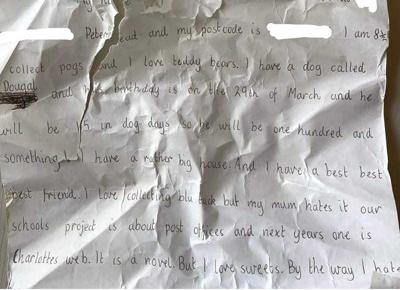 Peter and my postcode is I am 8½
collect pogs and I love teddy bears. I have a dog called
Dougal and his birthday is on the 29th of March and he
will be 15 in dog days so he will be one hundred and
something! I have a rather big house. And I have a best best
best friend. I love collecting blu tack but my mum hates it our
schools project is about post offices and next years one is
Charlottes web. It is a novel. But I love sweets. By the way I hate